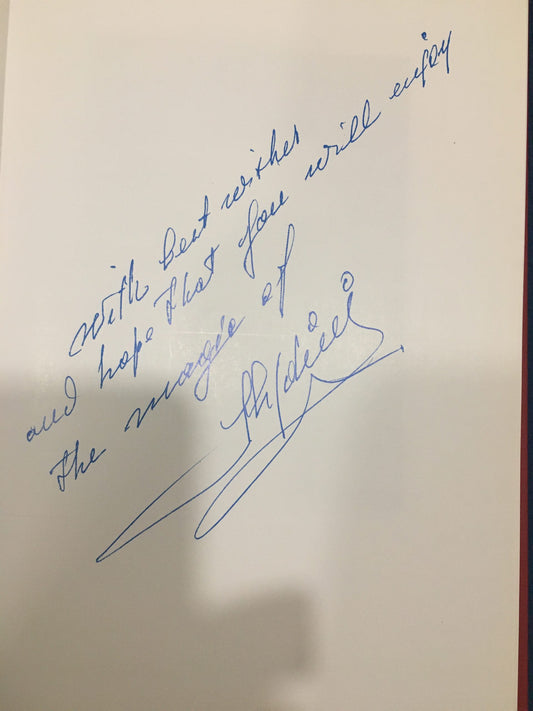 with best wishes
and hope that you will enjoy
the magic of